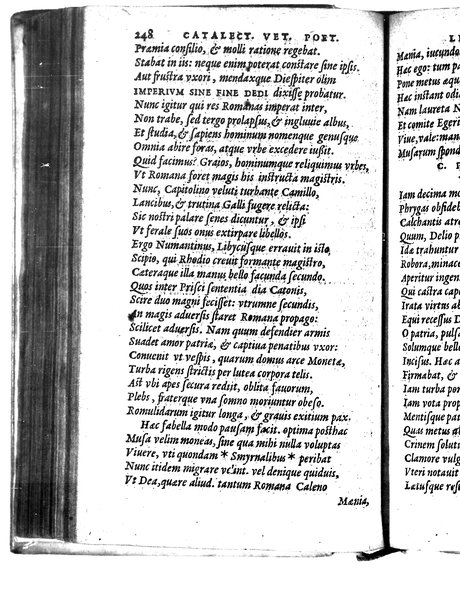 248 CATALECT. VET. POET.
Præmia consilio, & molli ratione regebat.
Stabat in iis: neque enim poterat constare sine ipsis.
Aut frustra vxori, mendaxque Diespiter olim
IMPERIVM SINE FINE DEDI dixisse probatur.
Nunc igitur qui res Romanas imperat inter,
Non trabe, sed tergo prolapsus, & ingluuie albus,
Et studia, & sapiens hominum nomenque genusque
Omnia abire foras, atque vrbe excedere iussit.
Quid facimus? Graios, hominumque reliquimus vrbes,
Vt Romana foret magis his instructa magistris.
Nunc, Capitolino veluti turbante Camillo,
Lancibus, & trutina Galli fugere relicta:
Sic nostri palare senes dicuntur, & ipsi
Vt ferale suos onus extirpare libellos.
Ergo Numantinus, Libycusque errauit in isto
Scipio, qui Rhodio creuit formante magistro,
Cateraque illa manus bello facunda secundo.
Quos inter Prisci sententia dia Catonis,
Scire duo magni fecisset: vtrumne secundis,
An magis aduersis staret Romana propago:
Scilicet aduersis. Nam quum defendier armis
Suadet amor patriæ, & captiua penatibus vxor:
Conuenit vt vespis, quarum domus arce Monetæ,
Turba rigens strictis per lutea corpora telis.
Ast vbi apes secura redit, oblita fauorum,
Plebs, fraterque vna somno moriuntur obeso.
Romulidarum igitur longa, & grauis exitium pax.
Hæc fabella modo pausam facit. optima posthac
Musa velim moneas, sine qua mihi nulla voluptas
Viuere, vti quondam * Smyrnalibus * peribat
Nunc itidem migrare velint. vel denique quiduis,
Vt Dea, quare aliud. tantum Romana Caleno
Mænia,
LI
Mænia, iucundo
Hac ego: tum pa
Pone metus æqu
Hac instant odi
Nam laureta N
Et comite Egeri
Viue, vale: man
Musarum spond
C. P
Iam decima mo
Phrygas obsideb
Calchantis atr
Quum, Delio p
Ida trahuntur
Robora, minace
Aperitur ingen
Qui castra capt
Irata virtus ab
Equi recessus D
O patria, puls
Solumque bell
Incisus. Hac a
Firmabat, &
Iam turba por
Iam vota prop
Mentisque pat
Quas metus a
Crinem solut
Clamore vulg
Vteri notauit
Letusque res